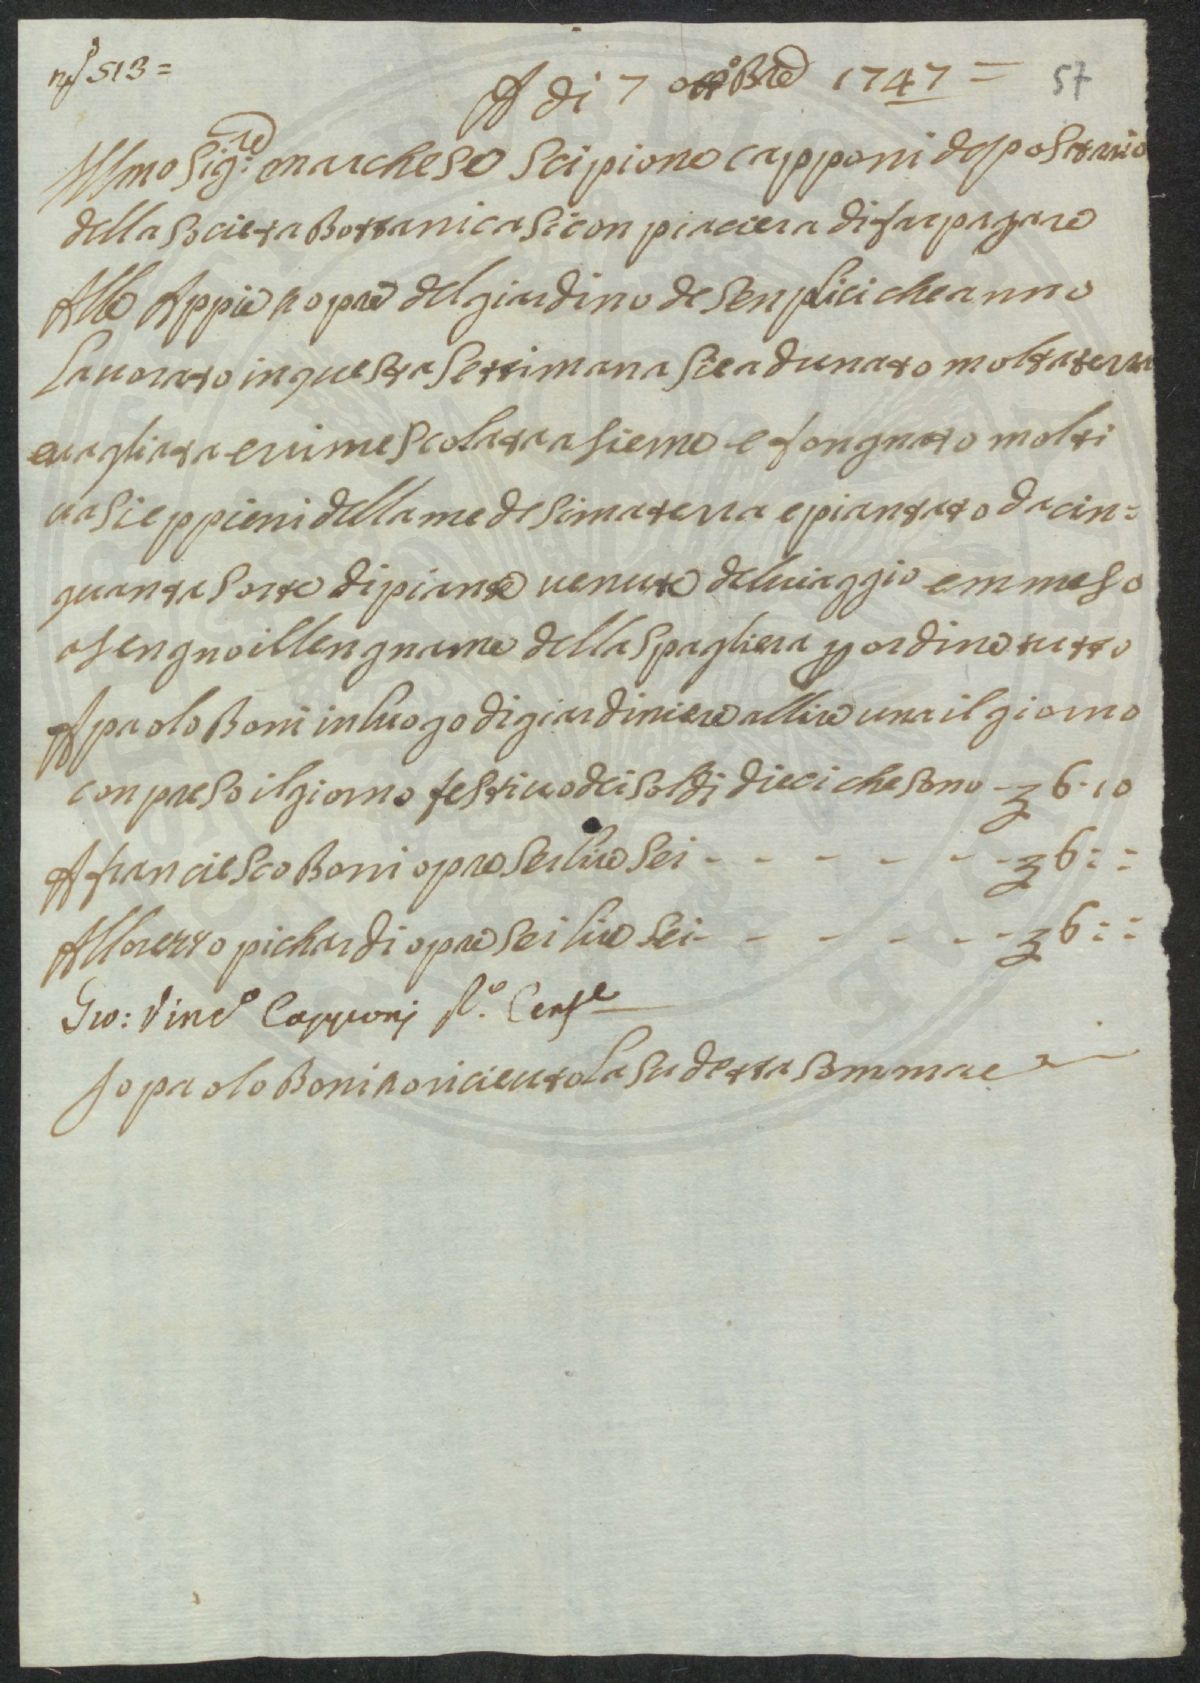 n° 513 =
A di 7 ottobre 1747 = 57
Illmo Sig:re marchese Scipione capponi depositario
della Societa Bottanica si con piaciera di far pagare
Alle Appie hopre del giardino de Senplici che anno
Lauorato in questa Settimana si e adunato molta terra
euagliata e rimescolata asieme e fongnato molti
uasi e ppieni della medesima terra e piantato da cin=
quanta Sorte di piante uenute del uiaggio emmeso
asengno il llengname della Spagliera p ordine tutto
A paolo Boni in luogo di giardiniere allire una il giorno
con preso il giorno festiuo dei soldi dieci che sono - 6.10
A franciesco Boni opre sei lire sei - - - - - - - 6 : :
A llorenzo pichardi opre sei lire sei - - - - - - - 6 : :
Gio: Vinc° Capponi
Io paolo Boni ho riceuto La sudetta Somma e